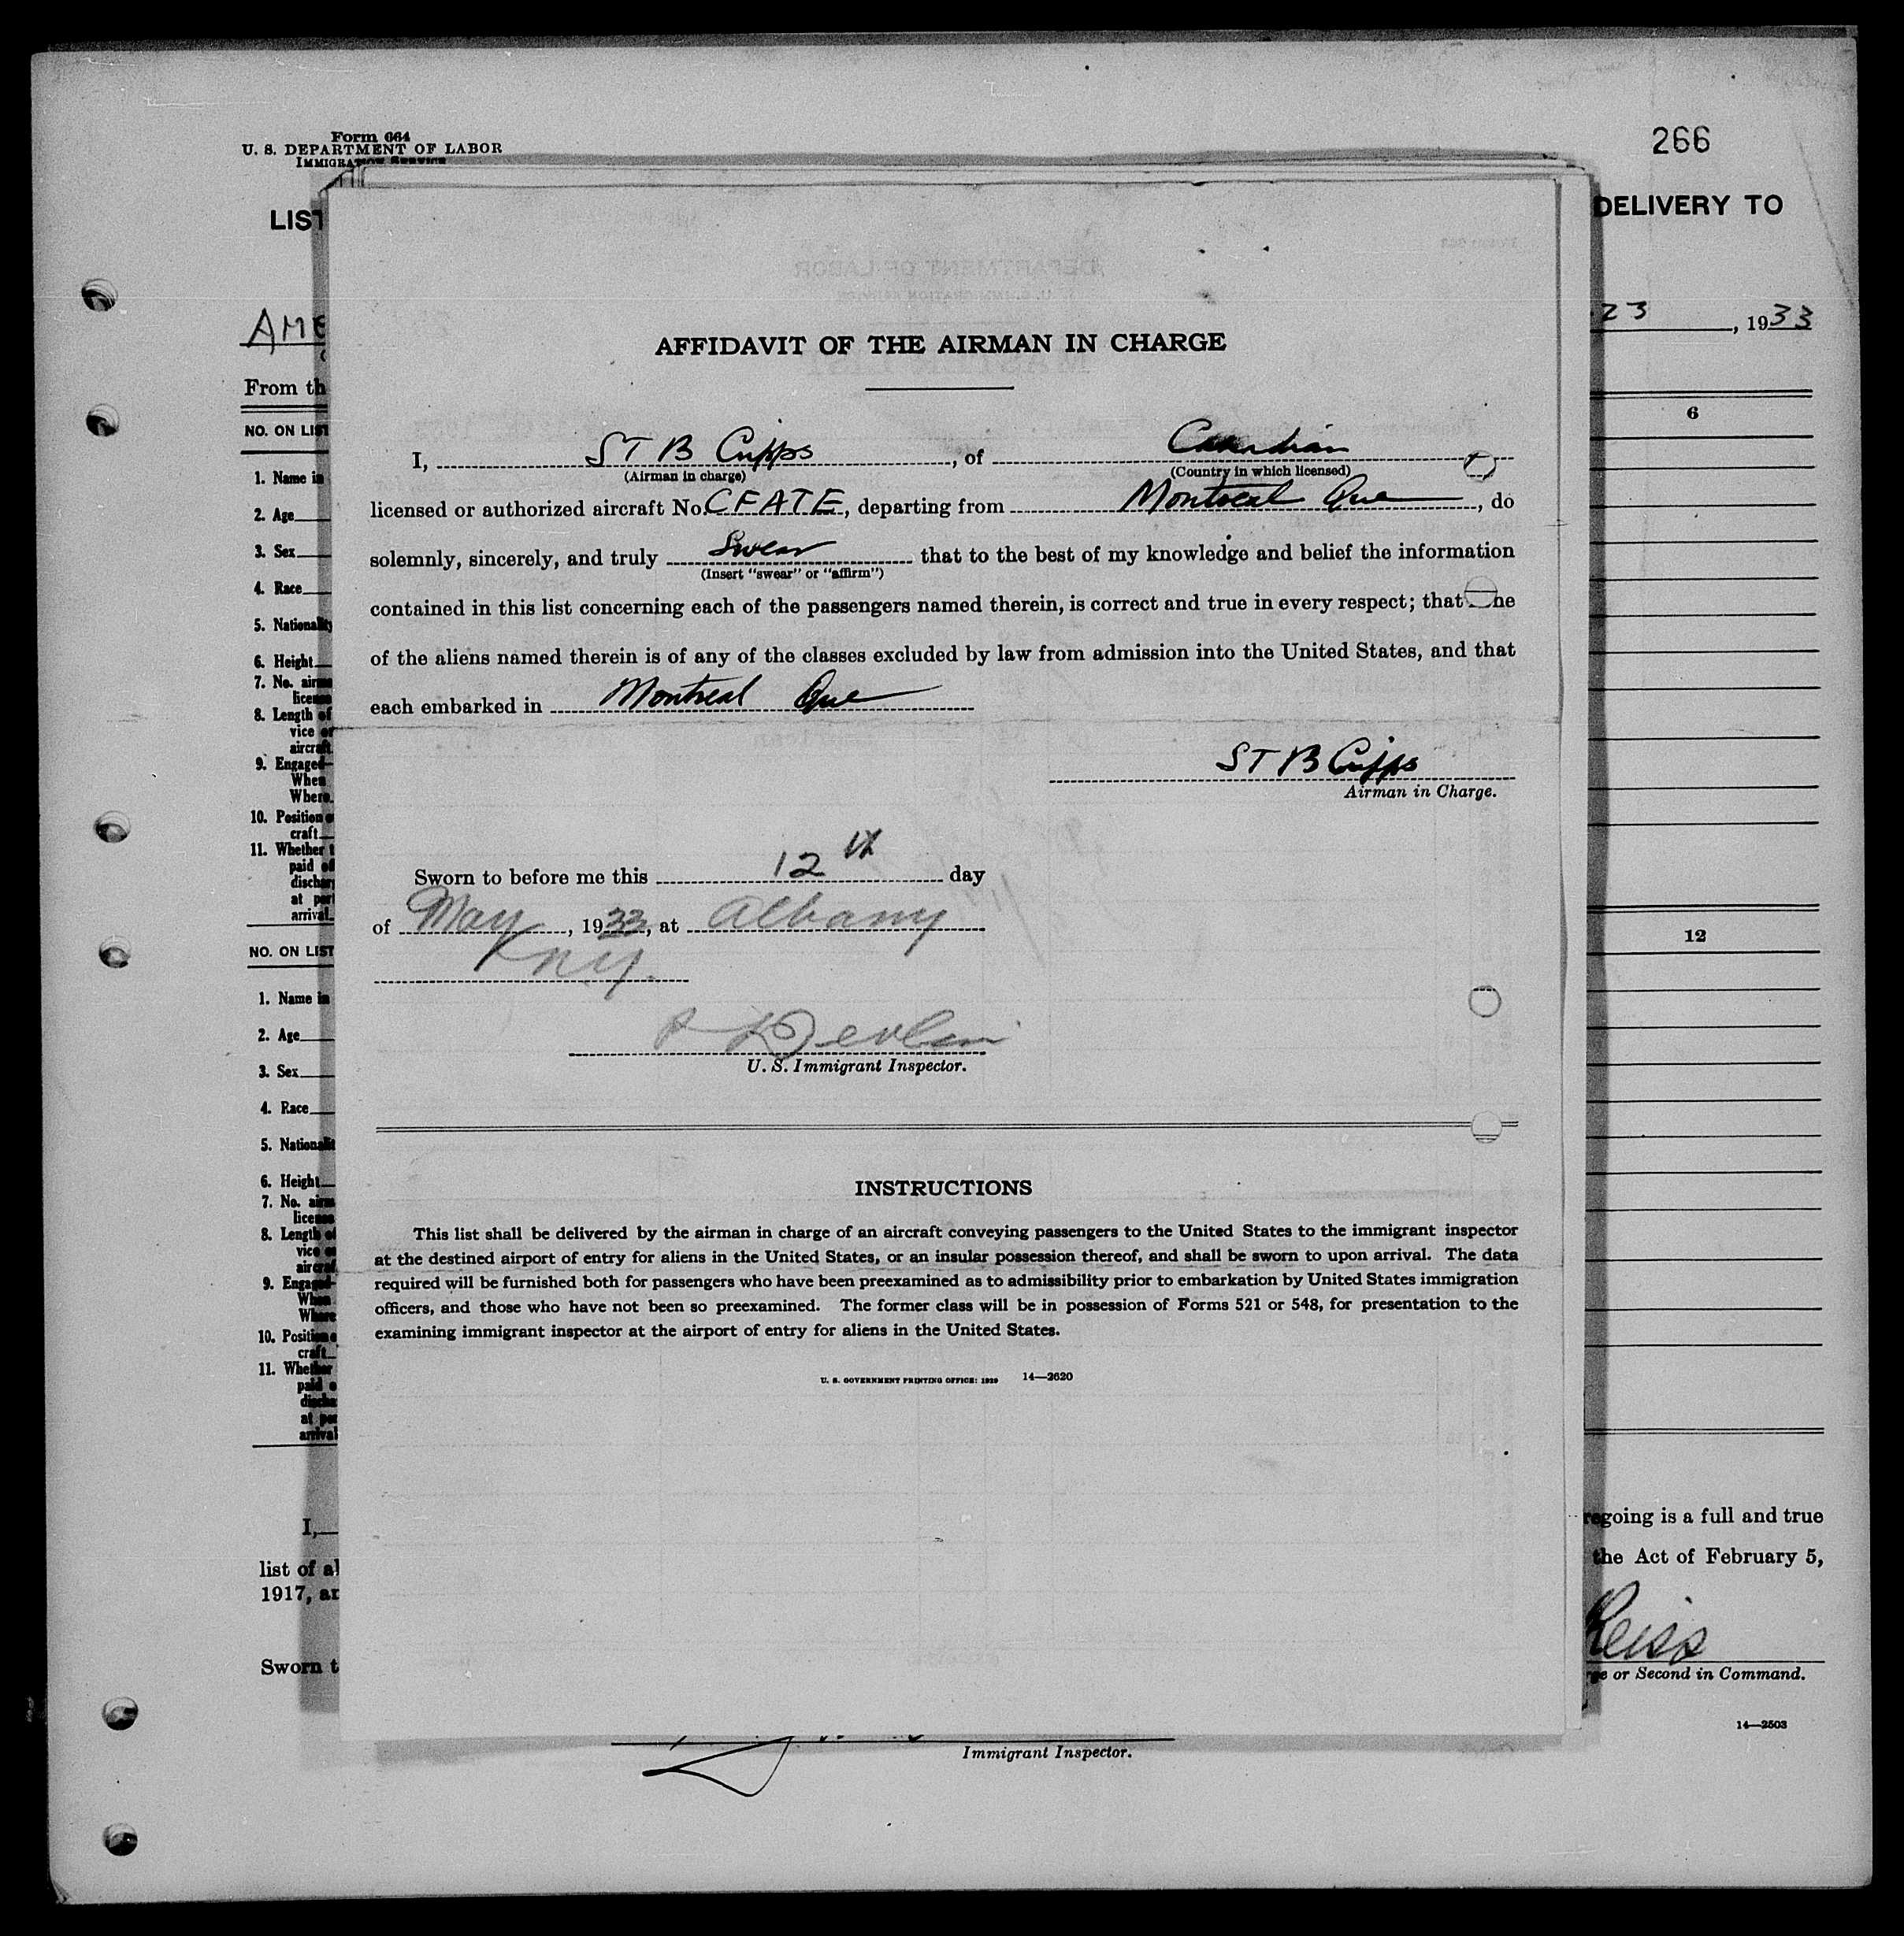 Form 664
U. S. DEPARTMENT OF LABOR
IMMIGRATION SERVICE
266
LIST
DELIVERY TO
AME
23, 1933
From th
NO. ON LIST
6
1. Name in
2. Age
3. Sex
4. Race
5. Nationality
6. Height
7. No. airm
license
8. Length of
vice or
aircraft
9. Engaged—
When
Where
10. Position o
craft
11. Whether t
paid of
dischar
at port
arrival
NO. ON LIST
12
1. Name in
2. Age
3. Sex
4. Race
5. Nationalit
6. Height
7. No. airm
license
8. Length of
vice or
aircraf
9. Engaged—
When
Where
10. Position o
craft
11. Whether
paid o
discha
at por
arrival
AFFIDAVIT OF THE AIRMAN IN CHARGE
I, ST B Cripps, of Canadian
(Airman in charge) (Country in which licensed)
licensed or authorized aircraft No. CFATE, departing from Montreal Que, do
solemnly, sincerely, and truly Swear that to the best of my knowledge and belief the information
(Insert "swear" or "affirm")
contained in this list concerning each of the passengers named therein, is correct and true in every respect; that ne
of the aliens named therein is of any of the classes excluded by law from admission into the United States, and that
each embarked in Montreal Que
ST B Cripps
Airman in Charge.
Sworn to before me this 12th day
of May, 1933, at Albany
N.Y.
Devlin
U. S. Immigrant Inspector.
INSTRUCTIONS
This list shall be delivered by the airman in charge of an aircraft conveying passengers to the United States to the immigrant inspector
at the destined airport of entry for aliens in the United States, or an insular possession thereof, and shall be sworn to upon arrival. The data
required will be furnished both for passengers who have been preexamined as to admissibility prior to embarkation by United States immigration
officers, and those who have not been so preexamined. The former class will be in possession of Forms 521 or 548, for presentation to the
examining immigrant inspector at the airport of entry for aliens in the United States.
U. S. GOVERNMENT PRINTING OFFICE: 1929 14—2620
I,
regoing is a full and true
list of al
the Act of February 5,
1917, an
Reiss
Sworn t
rge or Second in Command.
14—2503
Immigrant Inspector.